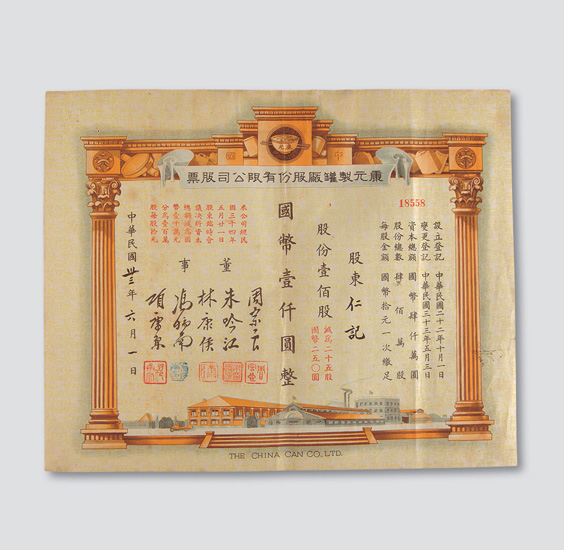 康元製罐廠股份有限公司股票
18558
設立登記 中華民國二十二年十月一日
變更登記 中華民國三十三年五月三日
資本總額 國幣肆仟萬圓
股份總數 肆佰萬股
每股金額 國幣拾元一次繳足
股東 仁記
股份壹佰股
減為二十五股
國幣二五〇圓
國幣壹仟圓整
董事
朱吟江
林康侯
項康原
本公司經民
國三十四年
五月廿一日
股東臨時會
議決將資本
總額減為國
幣壹千萬元
分為壹百萬
股每股拾元
中華民國卅三年六月一日
THE CHINA CAN CO., LTD.